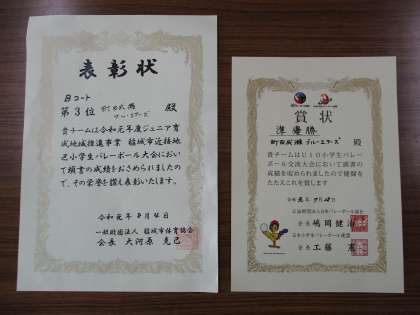 表彰状
Bコート
第3位 町田成瀬
ブルーエアーズ 殿
貴チームは令和元年度ジュニア育
成地域推進事業 稲城市近接地
区小学生バレーボール大会におい
て頭書の成績をおさめられましたの
で、その栄誉を讃え表彰いたします。
令和元年8月4日
一般財団法人 稲城市体育協会
会長 大河原 克己
賞状
準優勝
町田成瀬ブルーエアーズ 殿
貴チームはU10小学生バレー
ボール交流大会において頭書の
成績を収められましたので健闘を
たたえこれを賞します
会長 嶋岡健治
日本小学生バレーボール連盟
会長 工藤 憲